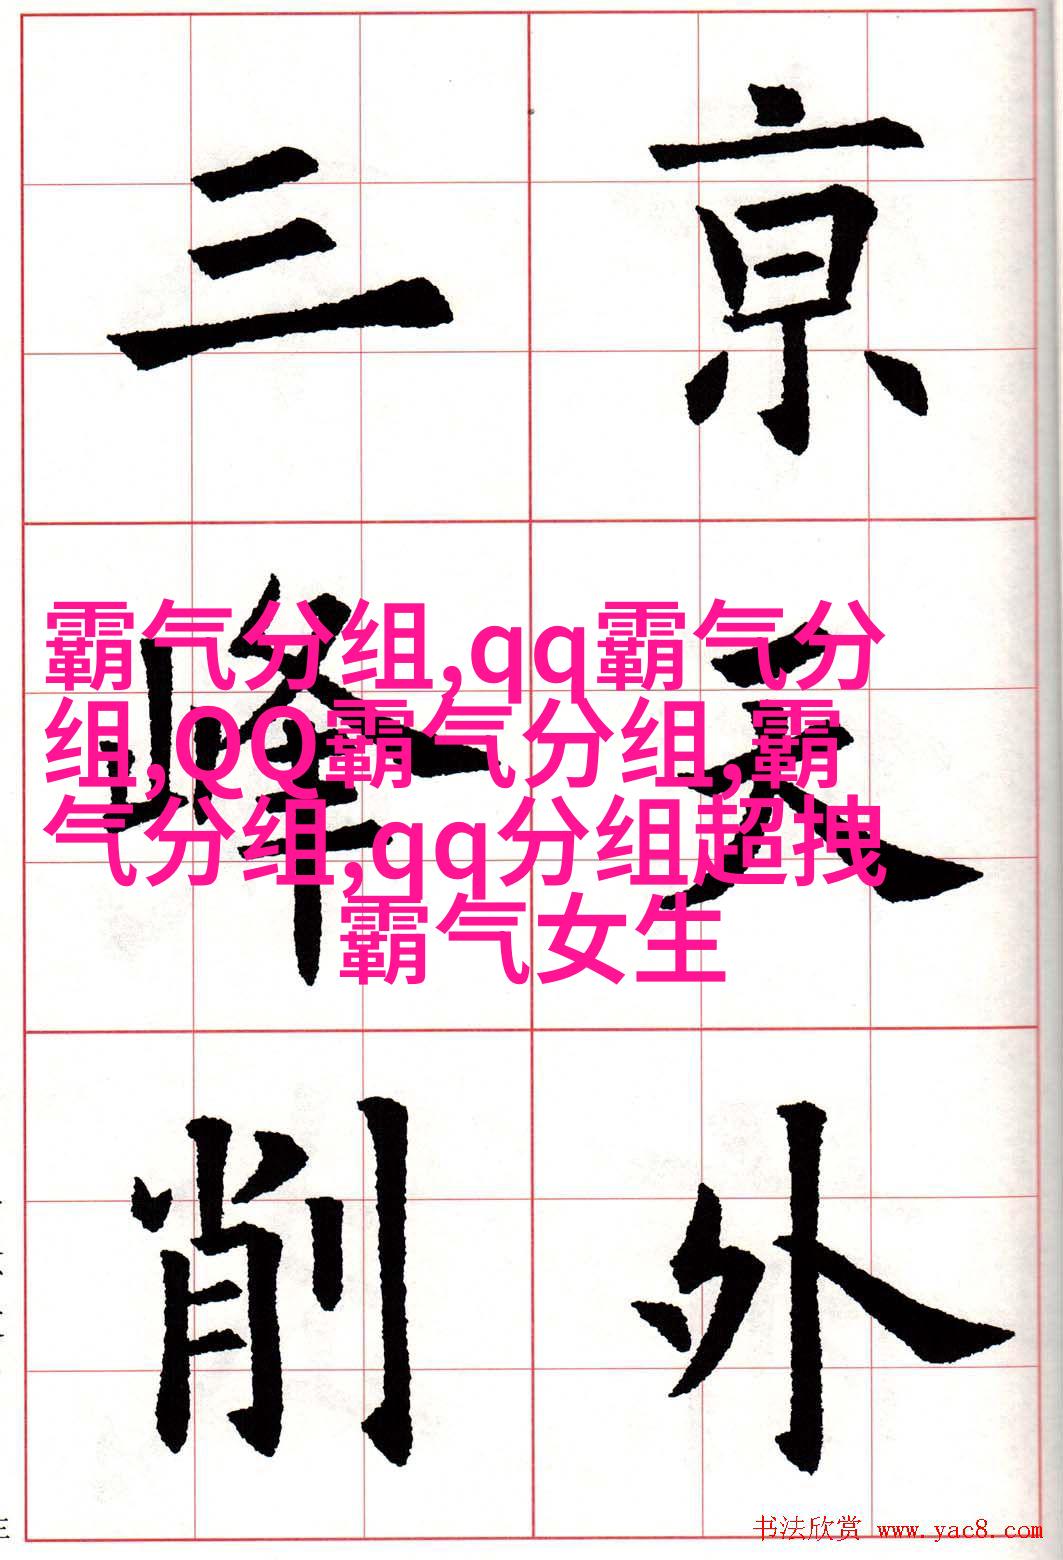 亰天外
三峰削
霸气分组,qq霸气分
组,QQ霸气分组,霸
气分组,qq分组超拽
霸气女生
书法欣赏 www.yac8.com